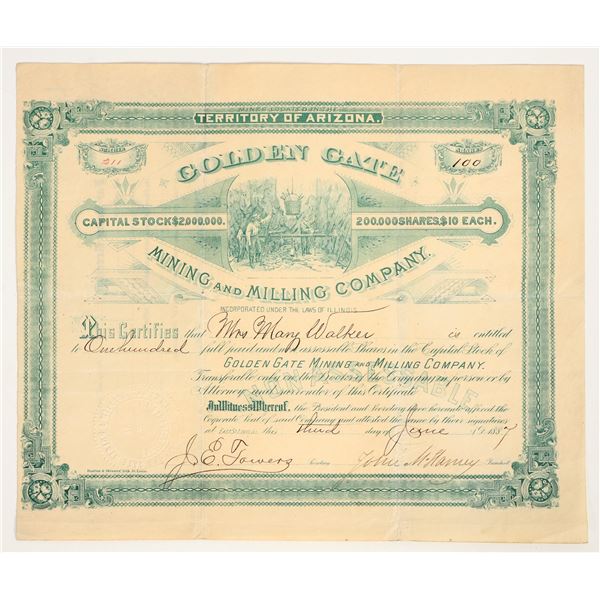 MINES LOCATED IN THE
TERRITORY OF ARIZONA.
211
SHARES
100
GOLDEN GATE
CAPITAL STOCK $2,000,000. 200,000 SHARES, $10 EACH.
MINING AND MILLING COMPANY.
INCORPORATED UNDER THE LAWS OF ILLINOIS
This Certifies that Mrs Mary Walker is entitled
to One hundred full paid and non assessable Shares in the Capital Stock of
GOLDEN GATE MINING AND MILLING COMPANY.
Transferable only on the Books of the Company in person or by
Attorney and surrender of this Certificate
In Witness Whereof, the President and Secretary have hereunto affixed the
Corporate Seal of said Company and attested the same by their signatures
at EAST ST LOUIS, ILL this third day of June 1887
J. E. Towers Secretary President